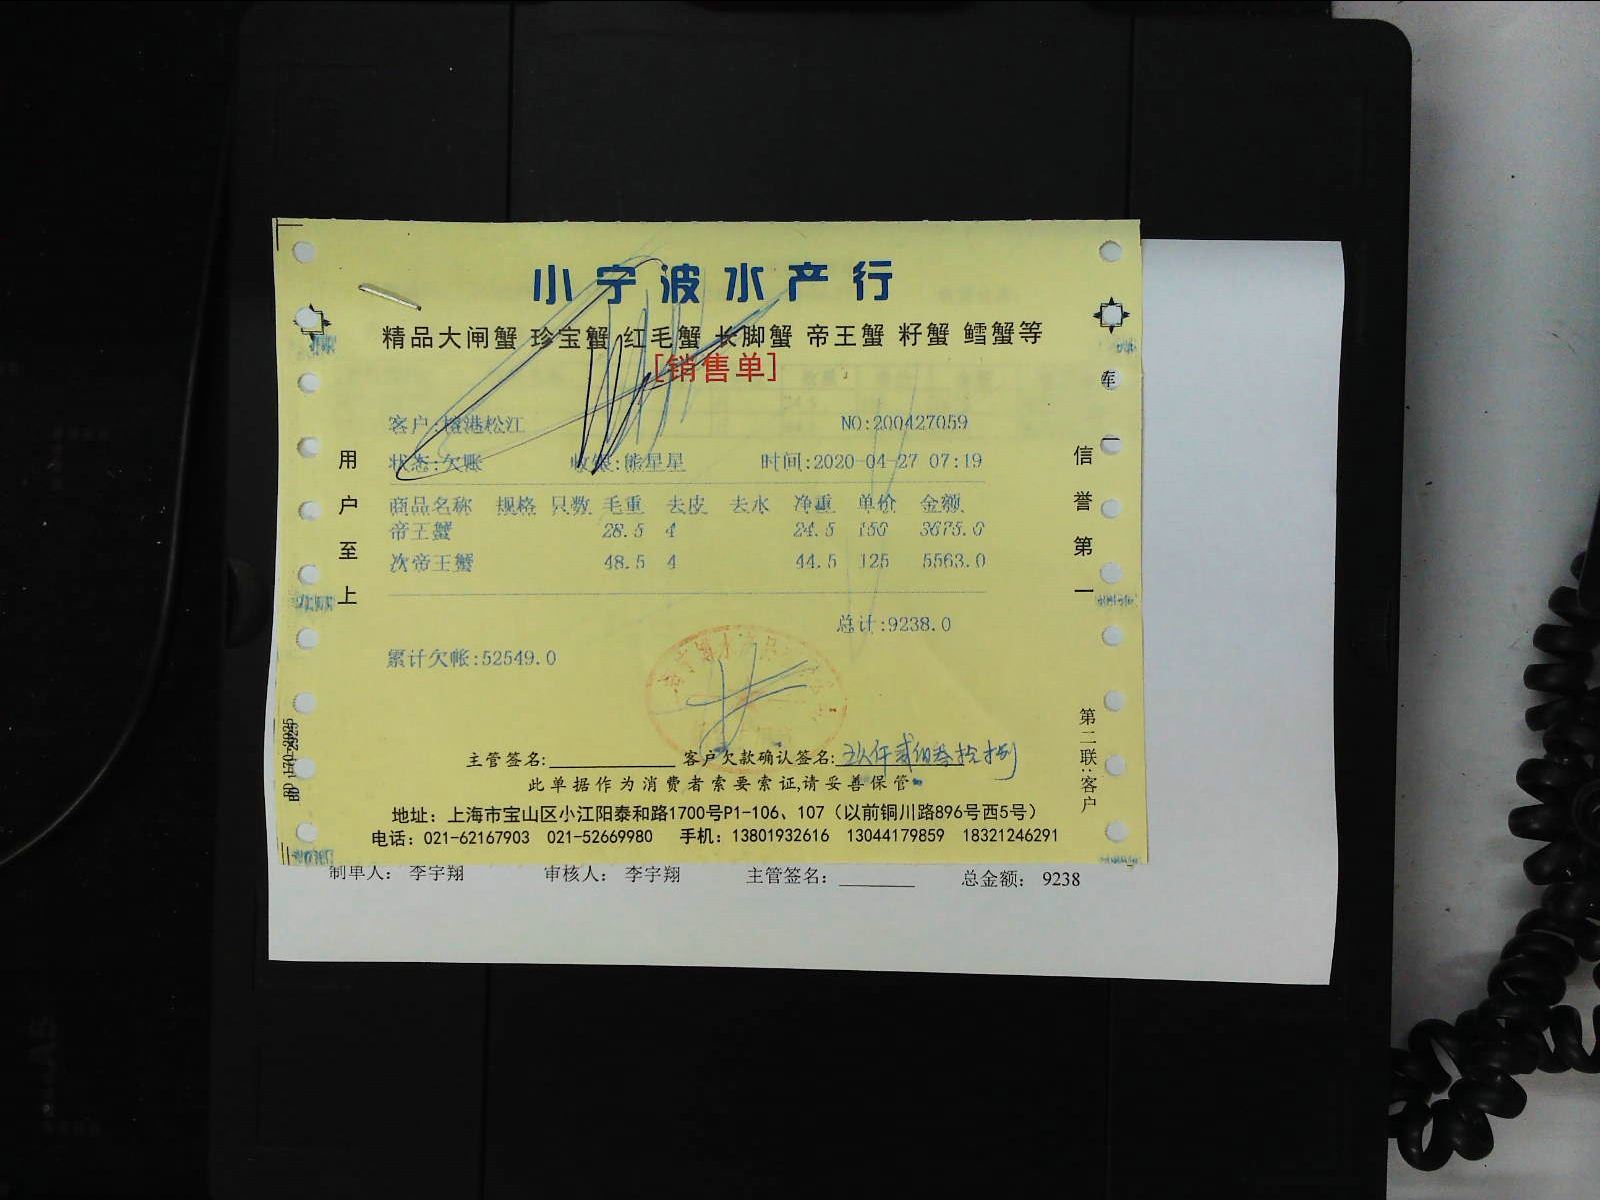 小宁波水产行
精品大闸蟹 珍宝蟹 红毛蟹 长脚蟹 帝王蟹 籽蟹 鳕蟹等
[销售单]
客户:榕港松江 NO:200427059
状态:欠账 收银:熊星星 时间:2020-04-27 07:19
商品名称 规格 只数 毛重 去皮 去水 净重 单价 金额
帝王蟹 28.5 4 24.5 150 3675.0
次帝王蟹 48.5 4 44.5 125 5563.0
总计:9238.0
累计欠帐:52549.0
用户至上
信誉第一
第二联:客户
主管签名: 客户欠款确认签名: 玖仟贰佰叁拾捌
此单据作为消费者索要索证,请妥善保管
地址：上海市宝山区小江阳泰和路1700号P1-106、107（以前铜川路896号西5号）
电话：021-62167903 021-52669980 手机：13801932616 13044179859 18321246291
制单人： 李宇翔 审核人： 李宇翔 主管签名： 总金额： 9238